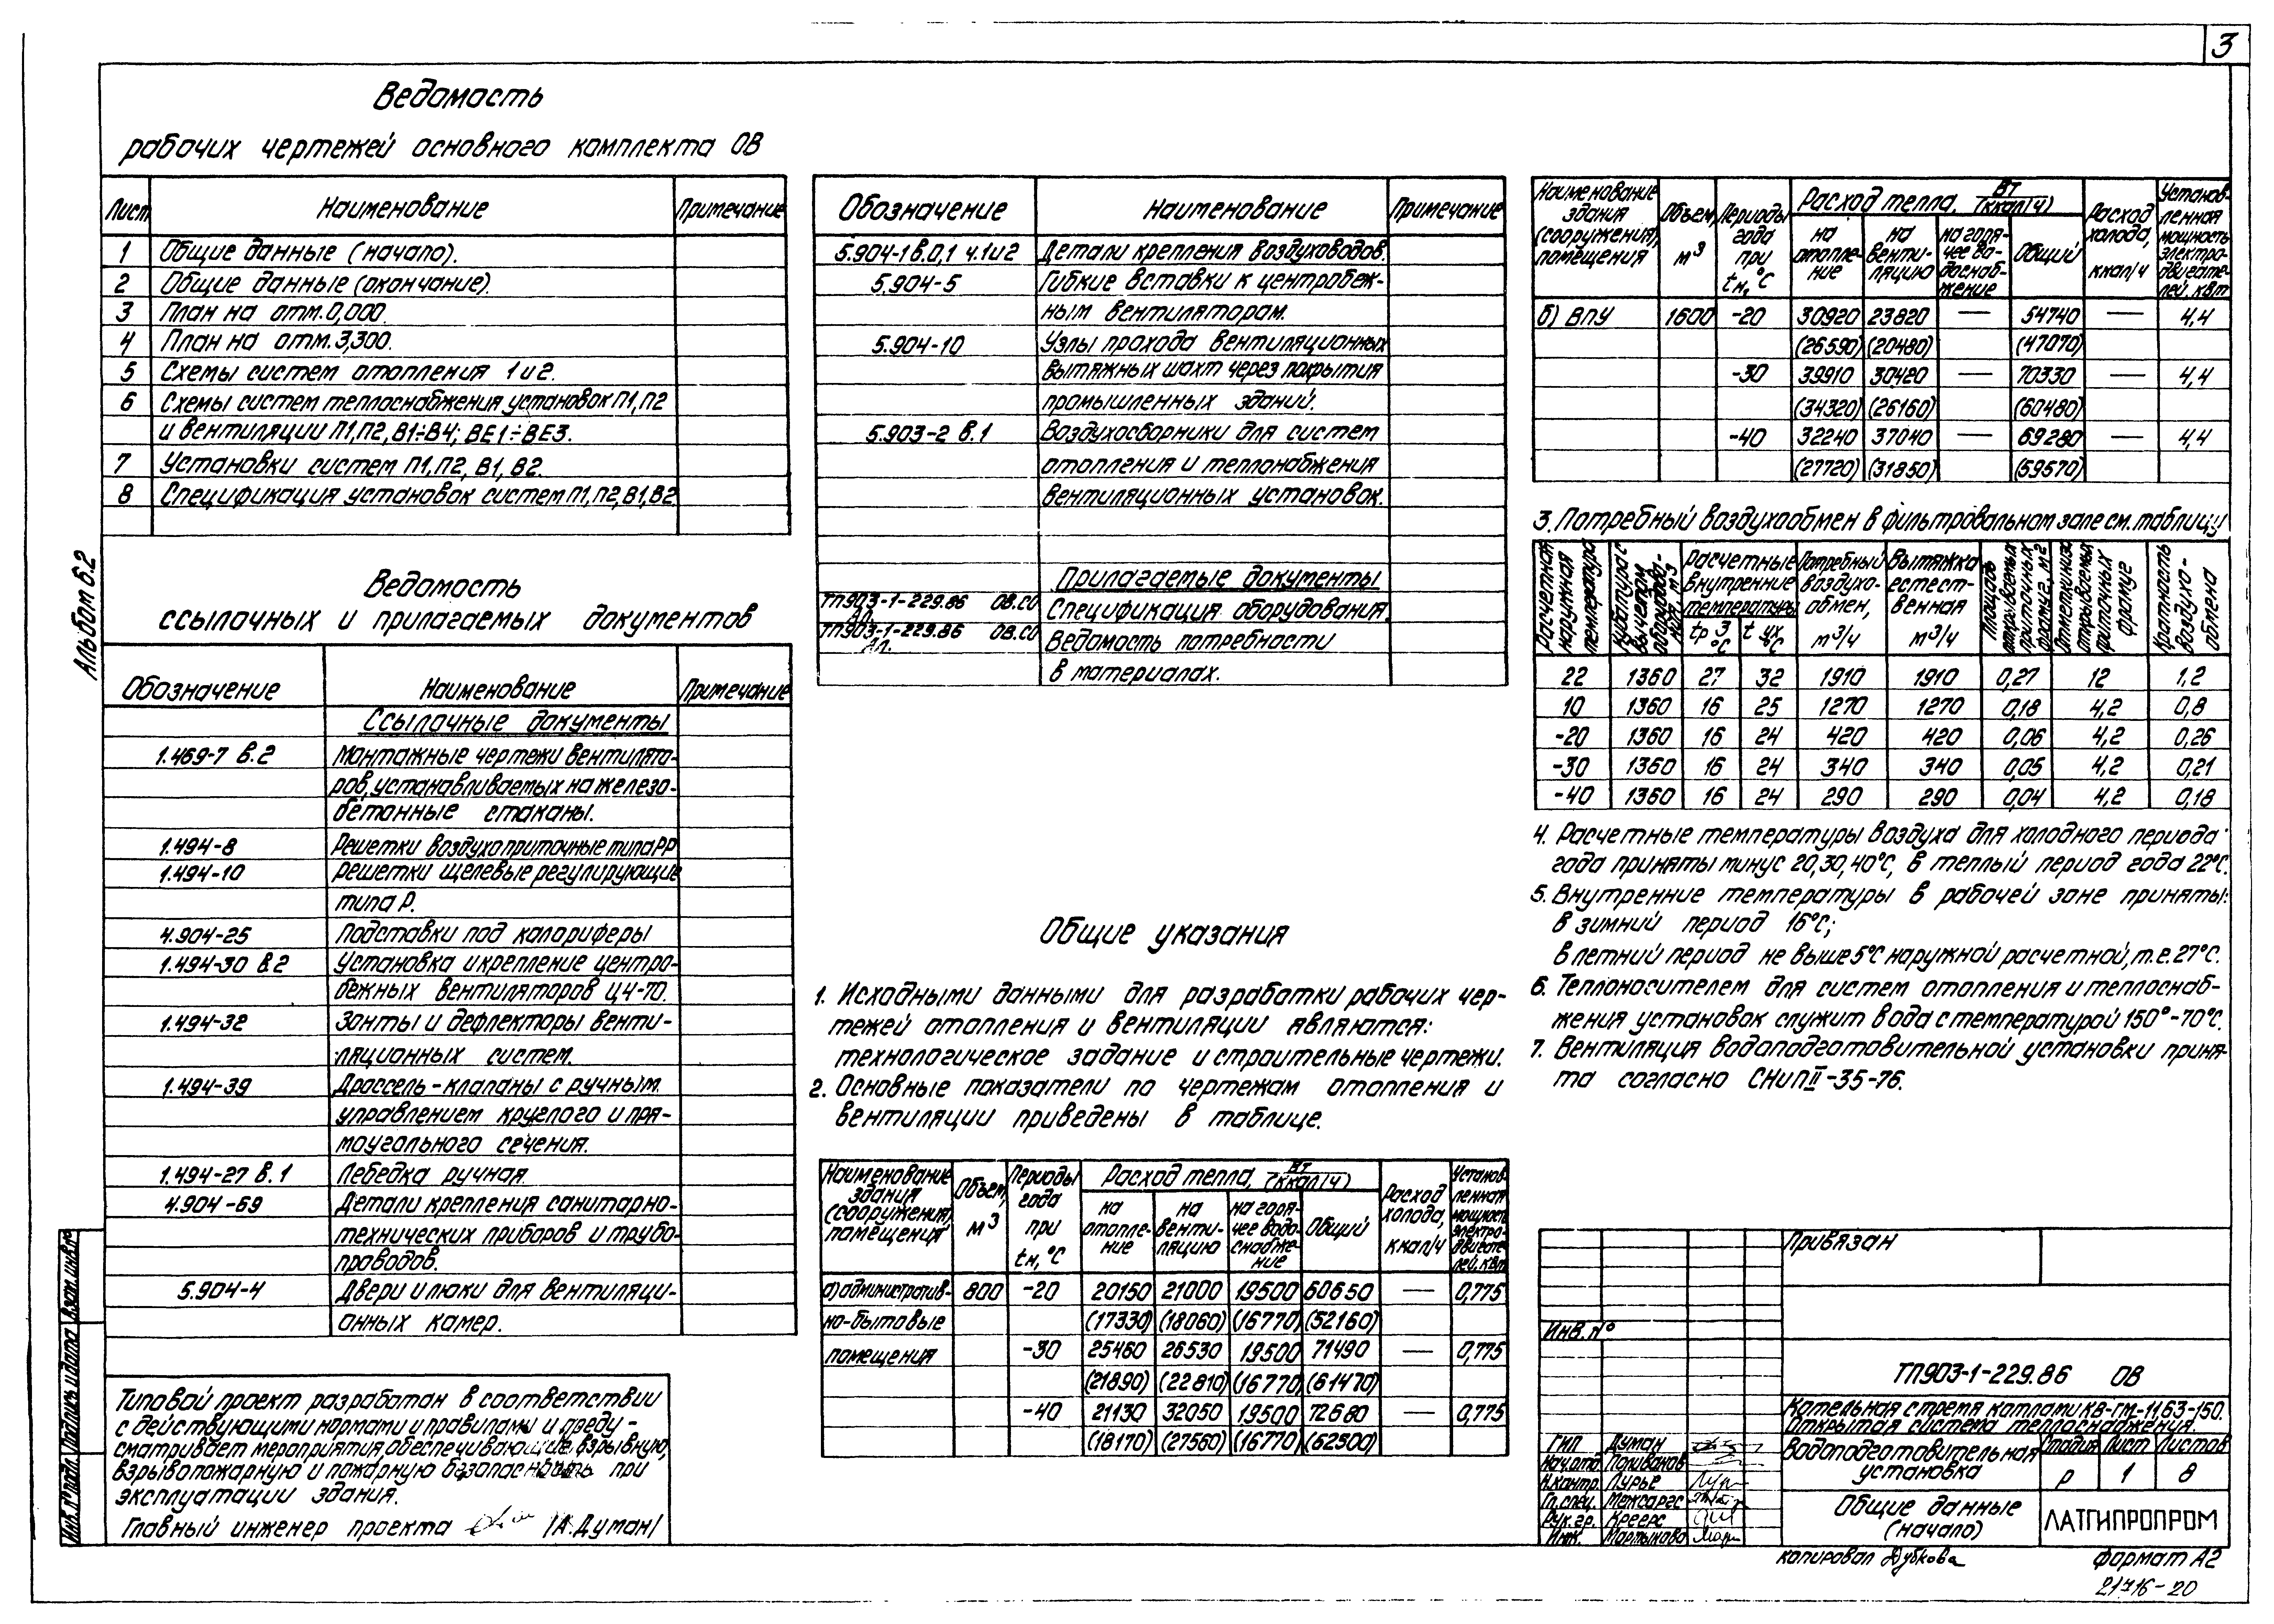 3
Ведомость
рабочих чертежей основного комплекта ОВ
Лист Наименование Примечание
1 Общие данные (начало).
2 Общие данные (окончание).
3 План на отм. 0,000.
4 План на отм. 3,300.
5 Схемы систем отопления 1 и 2.
6 Схемы систем теплоснабжения установок П1, П2
и вентиляции П1, П2, В1÷В4; ВЕ1÷ВЕ3.
7 Установки систем П1, П2, В1, В2.
8 Спецификация установок систем П1, П2, В1, В2
Альбом 6.2
Ведомость
ссылочных и прилагаемых документов
Обозначение Наименование Примечание
Ссылочные документы
1.469-7 в.2 Монтажные чертежи вентилято-
ров, устанавливаемых на железо-
бетонные стаканы.
1.494-8 Решетки воздухоприточные типа РР
1.494-10 Решетки щелевые регулирующие
типа Р.
4.904-25 Подставки под калориферы
1.494-30 в.2 Установка и крепление центро-
бежных вентиляторов Ц4-70.
1.494-32 Зонты и дефлекторы венти-
ляционных систем.
1.494-39 Дроссель-клапаны с ручным
управлением круглого и пря-
моугольного сечения.
1.494-27 в.1 Лебедка ручная
4.904-69 Детали крепления санитарно-
технических приборов и трубо-
проводов.
5.904-4 Двери и люки для вентиляци-
онных камер.
Типовой проект разработан в соответствии
с действующими нормами и правилами и преду-
сматривает мероприятия, обеспечивающие взрывную,
взрывопожарную и пожарную безопасность при
эксплуатации здания.
Главный инженер проекта /А.Думан/
Инв.№подл. Подпись и дата Взам.инв.№
Обозначение Наименование Примечание
5.904-1 в.0,1 ч.1и2 Детали крепления воздуховодов.
5.904-5 Гибкие вставки к центробеж-
ным вентиляторам.
5.904-10 Узлы прохода вентиляционных
вытяжных шахт через покрытия
промышленных зданий.
5.903-2 в.1 Воздухосборники для систем
отопления и теплонабжения
вентиляционных установок.
Прилагаемые документы
ТП903-1-229.86 ОВ.СО Спецификация оборудования.
Ал.
ТП903-1-229.86 ОВ.СО Ведомость потребности
Ал.
в материалах.
Общие указания
1. Исходными данными для разработки рабочих чер-
тежей отопления и вентиляции являются:
технологическое задание и строительные чертежи.
2. Основные показатели по чертежам отопления и
вентиляции приведены в таблице.
Наименование здания (сооружения), помещения Объем, м³ Периоды года при tн, °С Расход тепла, Вт/(ккал/ч) Расход холода, ккал/ч Установ-ленная мощность электро-двигате-лей, кВт
на отопле-ние на венти-ляцию на горя-чее водо-снабже-ние Общий
а) административ- 800 -20 20150 21000 19500 60650 — 0,775
но-бытовые (17330) (18060) (16770) (52160)
помещения -30 25460 26530 19500 71490 — 0,775
(21890) (22810) (16770) (61470)
-40 21130 32050 19500 72680 — 0,775
(18170) (27560) (16770) (62500)
Наименование здания (сооружения), помещения Объем, м³ Периоды года при tн, °С Расход тепла, Вт/(ккал/ч) Расход холода, ккал/ч Установ-ленная мощность электро-двигате-лей, кВт
на отопле-ние на венти-ляцию на горя-чее во-доснаб-жение Общий
б) ВПУ 1600 -20 30920 23820 — 54740 — 4,4
(26590) (20480) (47070)
-30 39910 30420 — 70330 — 4,4
(34320) (26160) (60480)
-40 32240 37040 — 69280 — 4,4
(27720) (31850) (59570)
3. Потребный воздухообмен в фильтровальном зале см. таблицу
Расчетная наружная температура Кубатура с вычетом оборудова-ния, м³ Расчетные внутренние температуры Потребный воздухо-обмен, м³/ч Вытяжка естест-венная м³/ч Площадь открываемых приточных фрамуг, м² Отметки низа открываемых приточных фрамуг Кратность воздухо-обмена
tр.з °С t ух. °С
22 1360 27 32 1910 1910 0,27 12 1,2
10 1360 16 25 1270 1270 0,18 4,2 0,8
-20 1360 16 24 420 420 0,06 4,2 0,26
-30 1360 16 24 340 340 0,05 4,2 0,21
-40 1360 16 24 290 290 0,04 4,2 0,18
4. Расчетные температуры воздуха для холодного периода
года приняты минус 20,30,40°С, в теплый период года 22°С.
5. Внутренние температуры в рабочей зоне приняты:
в зимний период 16°С;
в летний период не выше 5°С наружной расчетной, т.е. 27°С.
6. Теплоносителем для систем отопления и теплоснаб-
жения установок служит вода с температурой 150°-70°С.
7. Вентиляция водоподготовительной установки приня-
та согласно СНиП II-35-76.
Привязан
Инв.№
ТП903-1-229.86 ОВ
Котельная с тремя котлами КВ-ГМ-11.63-150.
Открытая система теплоснабжения.
ГИП Думан
Нач.отд. Поливанов
Н.контр. Лурье
Гл.спец. Межсаргс
Рук.гр. Креерс
Инж. Мартынова
Водоподготовительная установка
Стадия Лист Листов
Р 1 8
Общие данные
(начало)
ЛАТГИПРОПРОМ
Копировал Дубкова Формат А2
21716-20